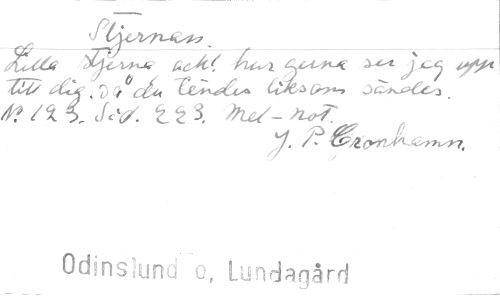 Stjernan.
Lilla stjerna ack! hur gerna ser jag upp
till dig. Då du tändes liksom sändes.
N. 123. Sid. 223. Mel-not.
J. P. Cronhamn.
Odinslund o, Lundagård